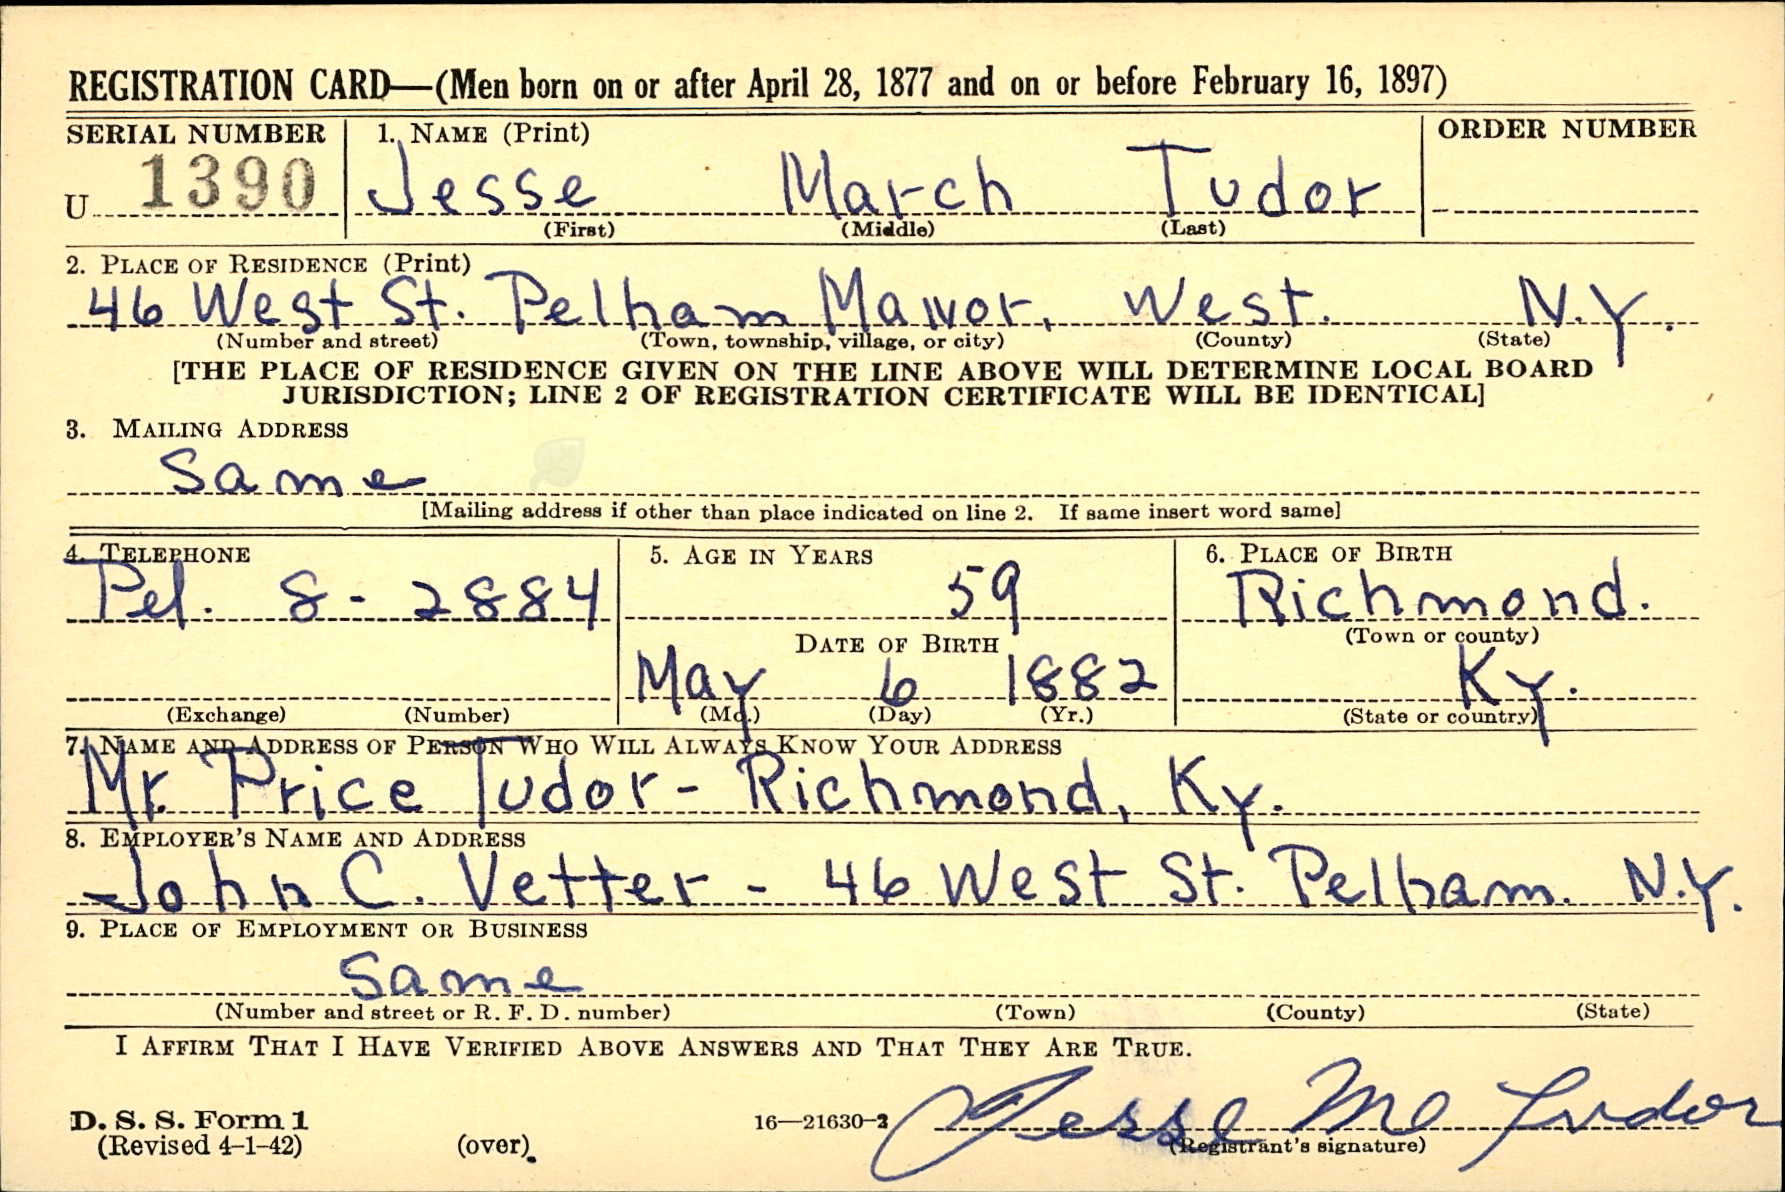 REGISTRATION CARD—(Men born on or after April 28, 1877 and on or before February 16, 1897)
SERIAL NUMBER
1. NAME (Print)
ORDER NUMBER
U 1390
Jesse March Tudor
(First) (Middle) (Last)
2. PLACE OF RESIDENCE (Print)
46 West St. Pelham Manor, West. N.Y.
(Number and street) (Town, township, village, or city) (County) (State)
[THE PLACE OF RESIDENCE GIVEN ON THE LINE ABOVE WILL DETERMINE LOCAL BOARD
JURISDICTION; LINE 2 OF REGISTRATION CERTIFICATE WILL BE IDENTICAL]
3. MAILING ADDRESS
Same
[Mailing address if other than place indicated on line 2. If same insert word same]
4. TELEPHONE
Pel. 8-2884
(Exchange) (Number)
5. AGE IN YEARS
59
DATE OF BIRTH
May 6 1882
(Mo.) (Day) (Yr.)
6. PLACE OF BIRTH
Richmond.
(Town or county)
Ky.
(State or country)
7. NAME AND ADDRESS OF PERSON WHO WILL ALWAYS KNOW YOUR ADDRESS
Mr. Price Tudor - Richmond, Ky.
8. EMPLOYER'S NAME AND ADDRESS
John C. Vetter - 46 West St. Pelham. N.Y.
9. PLACE OF EMPLOYMENT OR BUSINESS
Same
(Number and street or R. F. D. number) (Town) (County) (State)
I AFFIRM THAT I HAVE VERIFIED ABOVE ANSWERS AND THAT THEY ARE TRUE.
D. S. S. Form 1
(Revised 4-1-42) (over)
16—21630-2
Jesse M Tudor
(Registrant's signature)